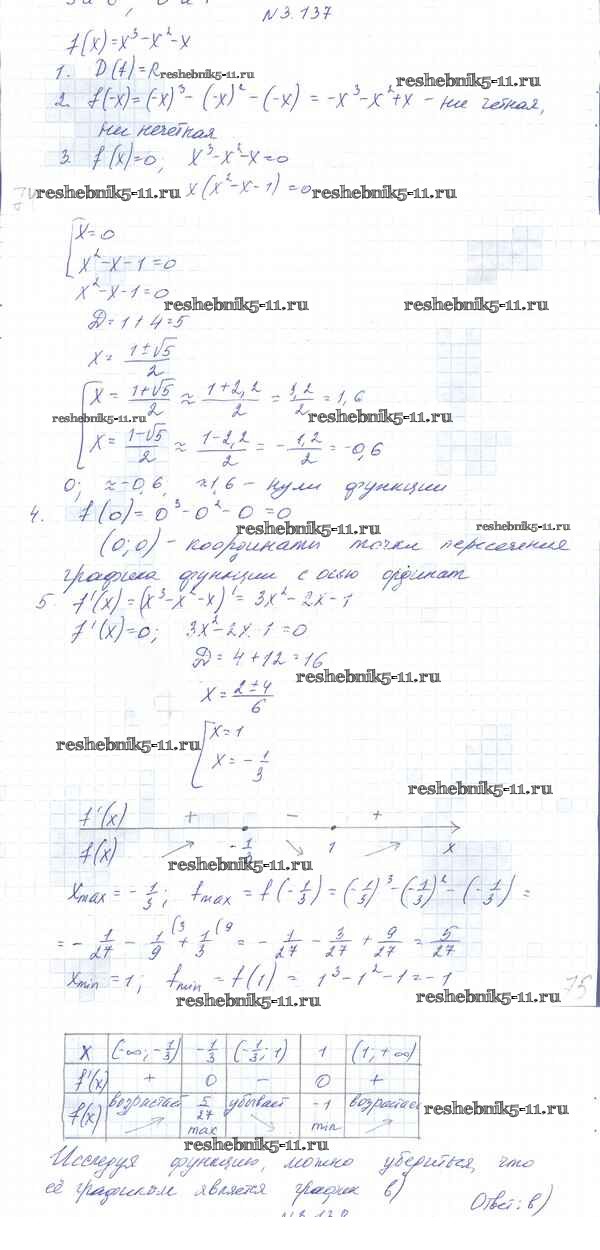 N3.137
f(x)=x³-x²-x
1. D(f)=R reshebnik5-11.ru
reshebnik5-11.ru
2. f(-x)=(-x)³-(-x)²-(-x)=-x³-x²+x - ни четная,
ни нечетная
3. f(x)=0; x³-x²-x=0
reshebnik5-11.ru x(x²-x-1)=0 reshebnik5-11.ru
x=0
x²-x-1=0
x²-x-1=0
reshebnik5-11.ru reshebnik5-11.ru
D=1+4=5
x=(1±√5)/2
x=(1+√5)/2≈(1+2,2)/2=3,2/2=1,6
reshebnik5-11.ru reshebnik5-11.ru
x=(1-√5)/2≈(1-2,2)/2=-1,2/2=-0,6
0; ≈-0,6, ≈1,6 - нули функции
4. f(0)=0³-0²-0=0
reshebnik5-11.ru reshebnik5-11.ru
(0;0) - координаты точки пересечения
графика функции с осью ординат
5. f'(x)=(x³-x²-x)'=3x²-2x-1
f'(x)=0; 3x²-2x-1=0
D=4+12=16
reshebnik5-11.ru
x=(2±4)/6
x=1
reshebnik5-11.ru
x=-1/3
reshebnik5-11.ru
f'(x) + - +
f(x) -1/3 1 x
reshebnik5-11.ru
xmax=-1/3; fmax=f(-1/3)=(-1/3)³-(-1/3)²-(-1/3)=
=-1/27-1/9(3+1/3(9=-1/27-3/27+9/27=5/27
xmin=1; fmin=f(1)=1³-1²-1=-1
75
reshebnik5-11.ru reshebnik5-11.ru
x (-∞;-1/3) -1/3 (-1/3;1) 1 (1;+∞)
f'(x) + 0 - 0 +
f(x) возрастает 5/27 max убывает -1 min возрастает
reshebnik5-11.ru
reshebnik5-11.ru
Исследуя функцию, можно убериться, что
её графиком является график в)
Ответ: в)